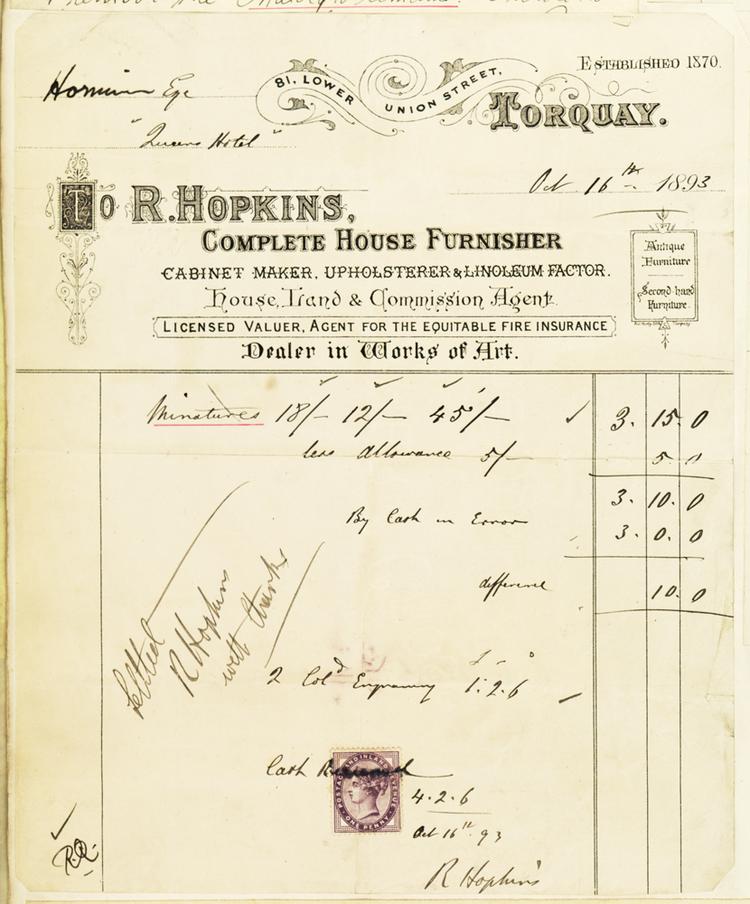 ESTABLISHED 1870.
81, LOWER UNION STREET,
TORQUAY.
Horniman Esq
"Queens Hotel"
Oct 16th 1893
TO R. HOPKINS,
COMPLETE HOUSE FURNISHER
CABINET MAKER, UPHOLSTERER & LINOLEUM FACTOR.
House, Land & Commission Agent.
LICENSED VALUER, AGENT FOR THE EQUITABLE FIRE INSURANCE
Dealer in Works of Art.
Antique
Furniture
Second-hand
Furniture.
Minatures 18/- 12/- 45/- 3. 15. 0
less allowance 5/- 5. 0
3. 10. 0
By Cash in Error 3. 0. 0
difference 10. 0
Settled
R Hopkins
with thanks
£ s d
2 Cold Engraving 1. 2. 6
Cash Received
POSTAGE AND INLAND REVENUE
ONE PENNY
4. 2. 6
Oct 16th 93
R Hopkins